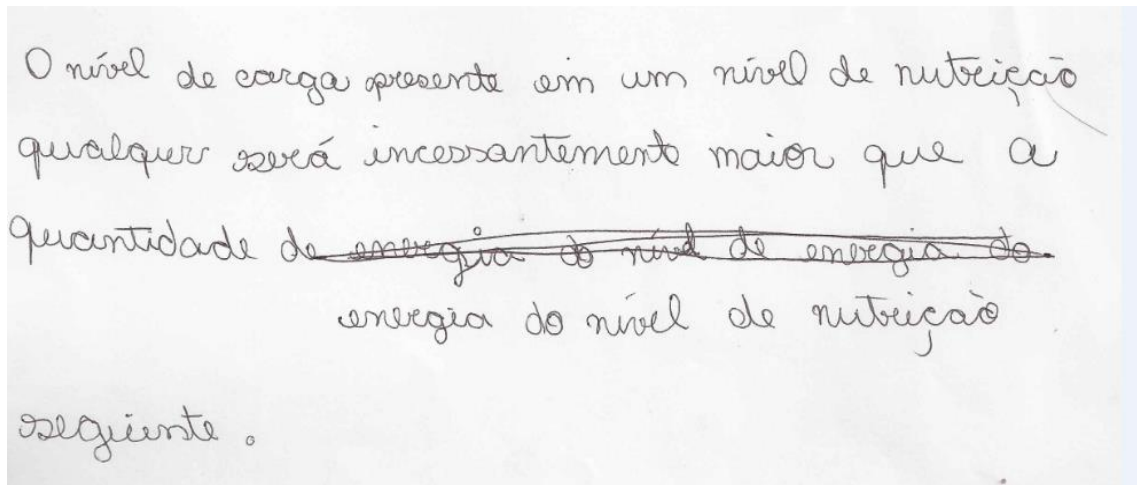 O nível de carga presente em um nível de nutrição
qualquer será incessantemente maior que a
quantidade de energia do nível de energia do
energia do nível de nutrição
seguinte.